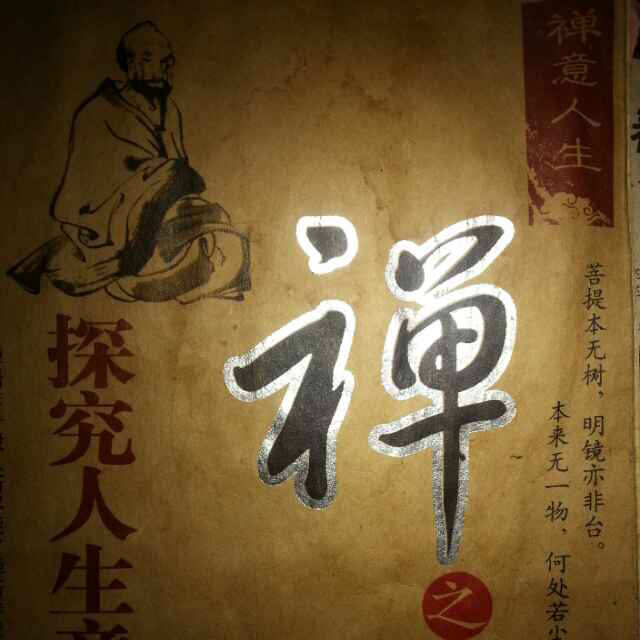 禅意人生
菩提本无树，明镜亦非台。
本来无一物，何处若
禅
之
探究人生